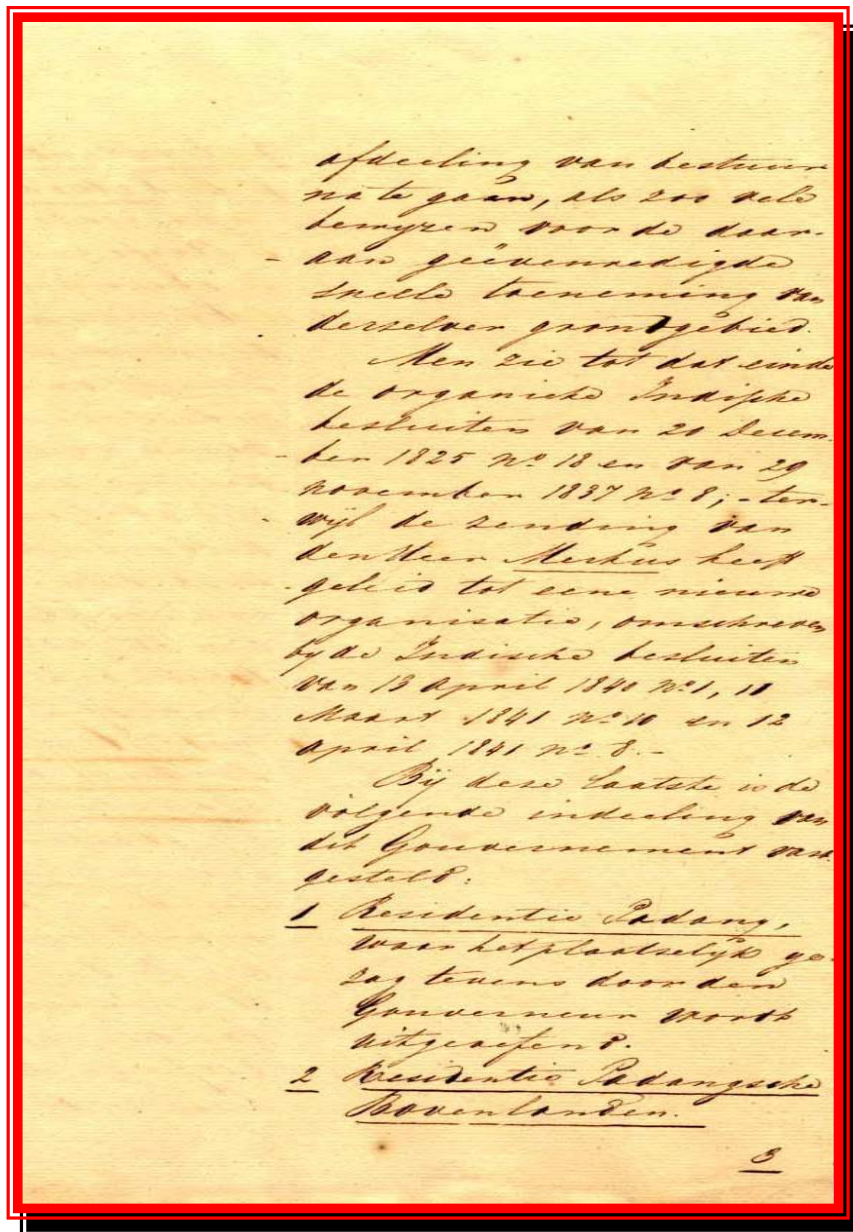 afdeeling van bestuur
na te gaan, als zoo vele
bewyzen voor de daar-
aan geëvenredigde
snelle toeneming van
derzelver grondgebied.
Men zie tot dat einde
de organieke Indische
besluiten van 20 Decem-
ber 1825 No 18 en van 29
november 1837 No 8; ter-
wyl de zending van
den Heer Merkus heeft
geleid tot eene nieuwe
organisatie, omschreven
by de Indische besluiten
van 13 april 1840 No 1, 11
Maart 1841 No 10 en 12
april 1841 No 8.-
Bij deze laatste is de
volgende indeeling van
dit Gouvernement vast
gesteld:
1 Residentie Padang,
waar het plaatselyk ge-
zag tevens door den
Gouverneur wordt
uitgeoefend.
2 Residentie Padangsche
Bovenlanden.
3